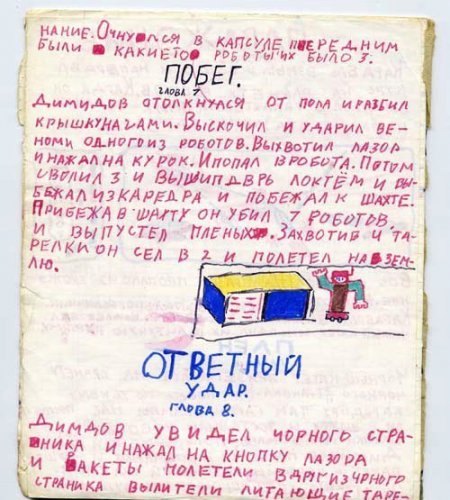 НАНИЕ. ОЧНУЛСЯ В КАПСУЛЕ ПЕРЕД НИМ
БЫЛИ КАКИЕТО РОБОТЫ ИХ БЫЛО 3.
ПОБЕГ.
ГЛАВА 7
ДИМИДОВ ОТОЛКНУЛСЯ ОТ ПОЛА И РАЗБИЛ
КРЫШКУ НАГАМИ. ВЫСКОЧИЛ И УДАРИЛ ВЕ-
НОМИ ОДНОГО ИЗ РОБОТОВ. ВЫХВОТИЛ ЛАЗОР
И НАЖАЛ НА КУРОК. И ПОПАЛ В РОБОТА. ПОТОМ
СВОЛИЛ 3 И ВЫШИП ДВРЬ ЛОКТЁМ И ВЫ-
БЕЖАЛ ИЗ КАРЕДРА И ПОБЕЖАЛ К ШАХТЕ.
ПРИБЕЖА В ШАХТУ ОН УБИЛ 7 РОБОТОВ
И ВЫПУСТЕЛ ПЛЕНЫХ. ЗАХВОТИВ 4 ТА-
РЕЛКИ ОН СЕЛ В 2 И ПОЛЕТЕЛ НА ЗЕМ-
ЛЮ.
ОТВЕТНЫЙ
УДАР.
ГЛАВА 8.
ДИМДОВ УВИДЕЛ ЧОРНОГО СТРА-
НИКА И НАЖАЛ НА КНОПКУ ЛАЗОРА
И РАКЕТЫ ПОЛЕТЕЛИ ВДРУГ ИЗ ЧРНОГО
СТРАНИКА ВЫЛИТЕЛИ ЛИТАЮЩИЕ ТАРЕ-